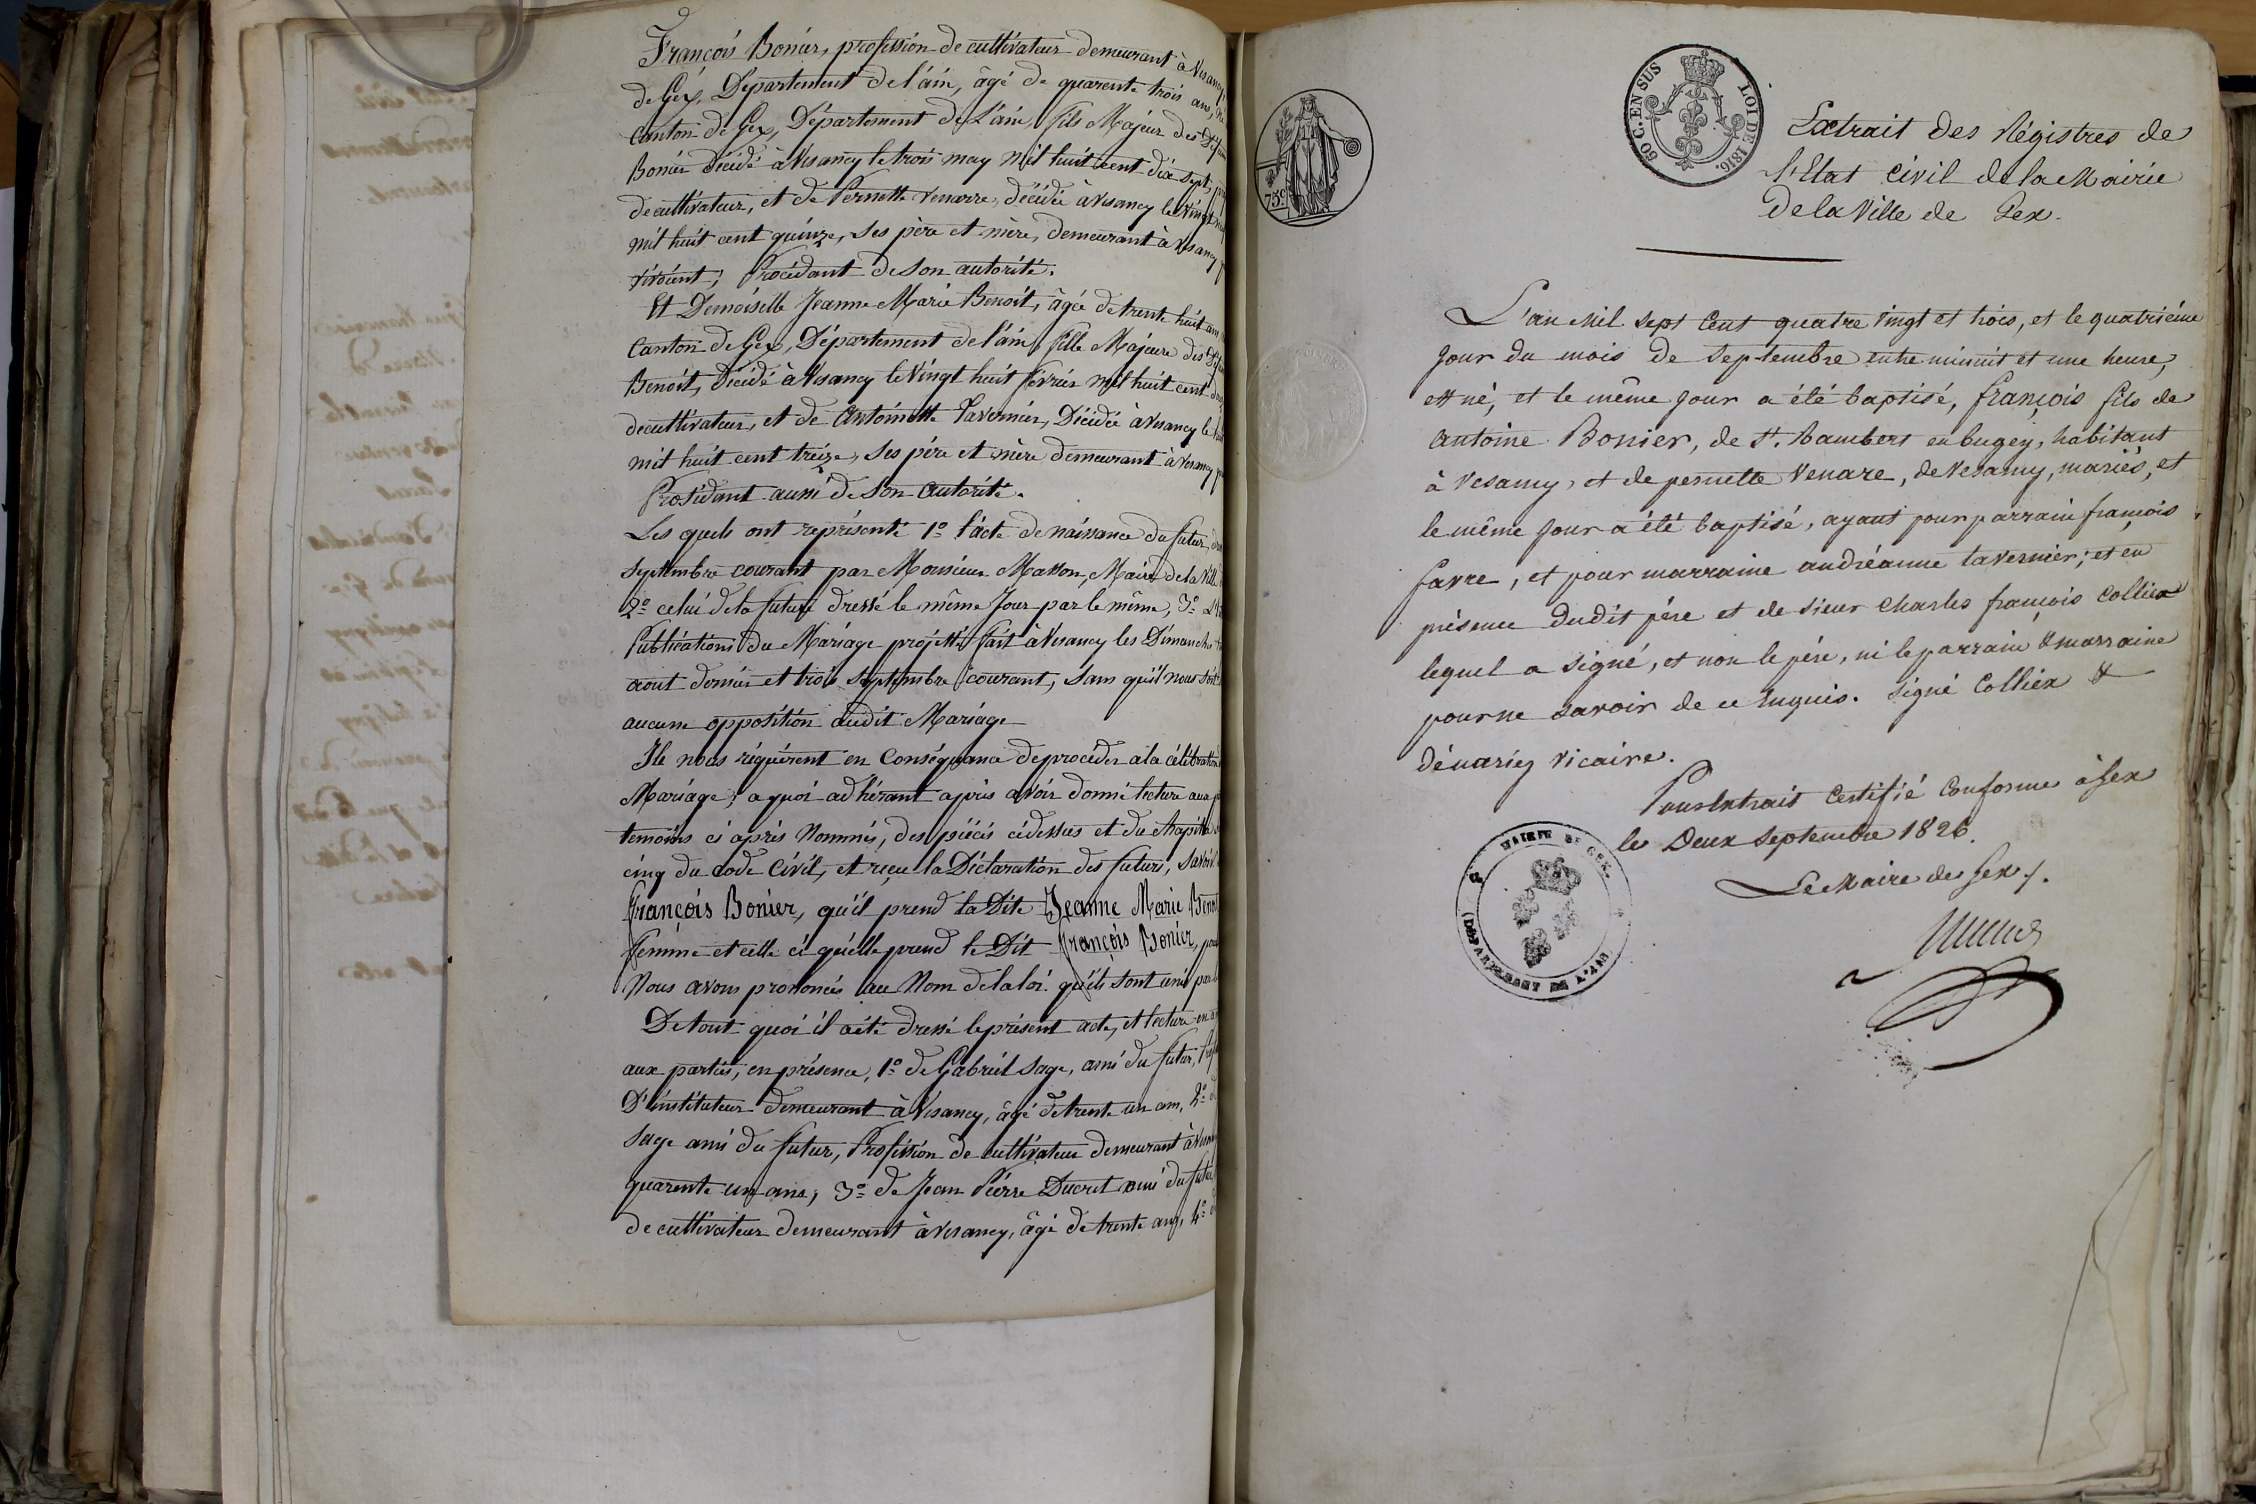 François Bonier, profession de cultivateur demeurant à Vesancy,
de Gex, Département de l'ain, âgé de quarente trois ans, né
Canton de Gex, Département de L'ain, fils Majeur des Défun
Bonier décidé à Vesancy le trois may mil huit cent dix sept,
de cultivateur, et de Pernette Venarre, décédée à Vesancy le Vingt
mil huit cent quinze, ses père et mère, demeurant à Vesancy
vivoient; Procédant de son autorité.
Et Demoiselle Jeanne Marie Benoit, âgée de trente huit ans
Canton de Gex, Département de l'ain, fille Majeure des Défun
Benoit, décidé à Vesancy le Vingt huit février mil huit cent
de cultivateur, et de Antoinette Tavernier, Décidée à Vesancy le
mil huit cent treize, ses père et mère demeurant à Vesancy
Procédant aussi de son autorité.
Les quels ont représenté 1º l'acte de naissance du futur,
septembre courant par Monsieur Masson, Maire de la Ville
2º celui de la future dressé le même Jour par le même, 3º
Publications du Mariage projetté fait à Vesancy les Dimanches
aout dernier et trois septembre courant, sans qu'il nous soit
aucune opposition audit Mariage
Ils nous réquérent en Conséquance de procéder a la célébration
Mariage; a quoi adhérant après avoir donné lecture aux
temoins ci après Nommés, des piécis cidessus et du chapitre
cinq du code Civil, et reçu la Déclaration des futurs, savoir
françois Bonier, qu'il prend la Dite Jeanne Marie Benoit
femme et celle ci qu'elle prend le Dit françois Bonier, pour
Nous avons prononcés au Nom de la loi qu'ils sont unis par
De tout quoi il a été dressé le présent acte, et lecture en
aux parties, en présence, 1º de Gabriel Sage, ami du futur,
D'instituteur demeurant à Vesancy, âgé de trente un ans, 2º
Sage ami du futur, Profession de cultivateur demeurant à Vesancy
quarente un ans, 3º de Jean Pierre Ducret ami du futur
de cultivateur demeurant à Vesancy, âgé de trente ans, 4º
75 c
50 C. EN SUS
LOI DE 1816.
Extrait des Régistres de
l'Etat civil de la Mairie
De la Ville de Gex.
L'an Mil sept Cent quatre vingt et trois, et le quatriéme
jour du mois de septembre entre minuit et une heure,
est né, et le même jour a été baptisé, françois fils de
antoine Bonier, de St. Rambert en bugey, habitant
à Vesancy, et de pernette Venare, de Vesancy, mariés, et
le même jour a été baptisé, ayant pour parrain françois
favre, et pour marraine andréanne tavernier; et en
présence dudit pére et de sieur Charles françois Collien
lequel a signé, et non le pére, ni le parrain & marraine
pour ne savoir de ce Enquis. signé Colliex &
Dénariez vicaire.
Pour Extrait Certifié Conforme à Gex
le Deux septembre 1826.
Le Maire de Gex /.
MAIRIE DE GEX
(DÉPARTEMENT DE L'AIN)